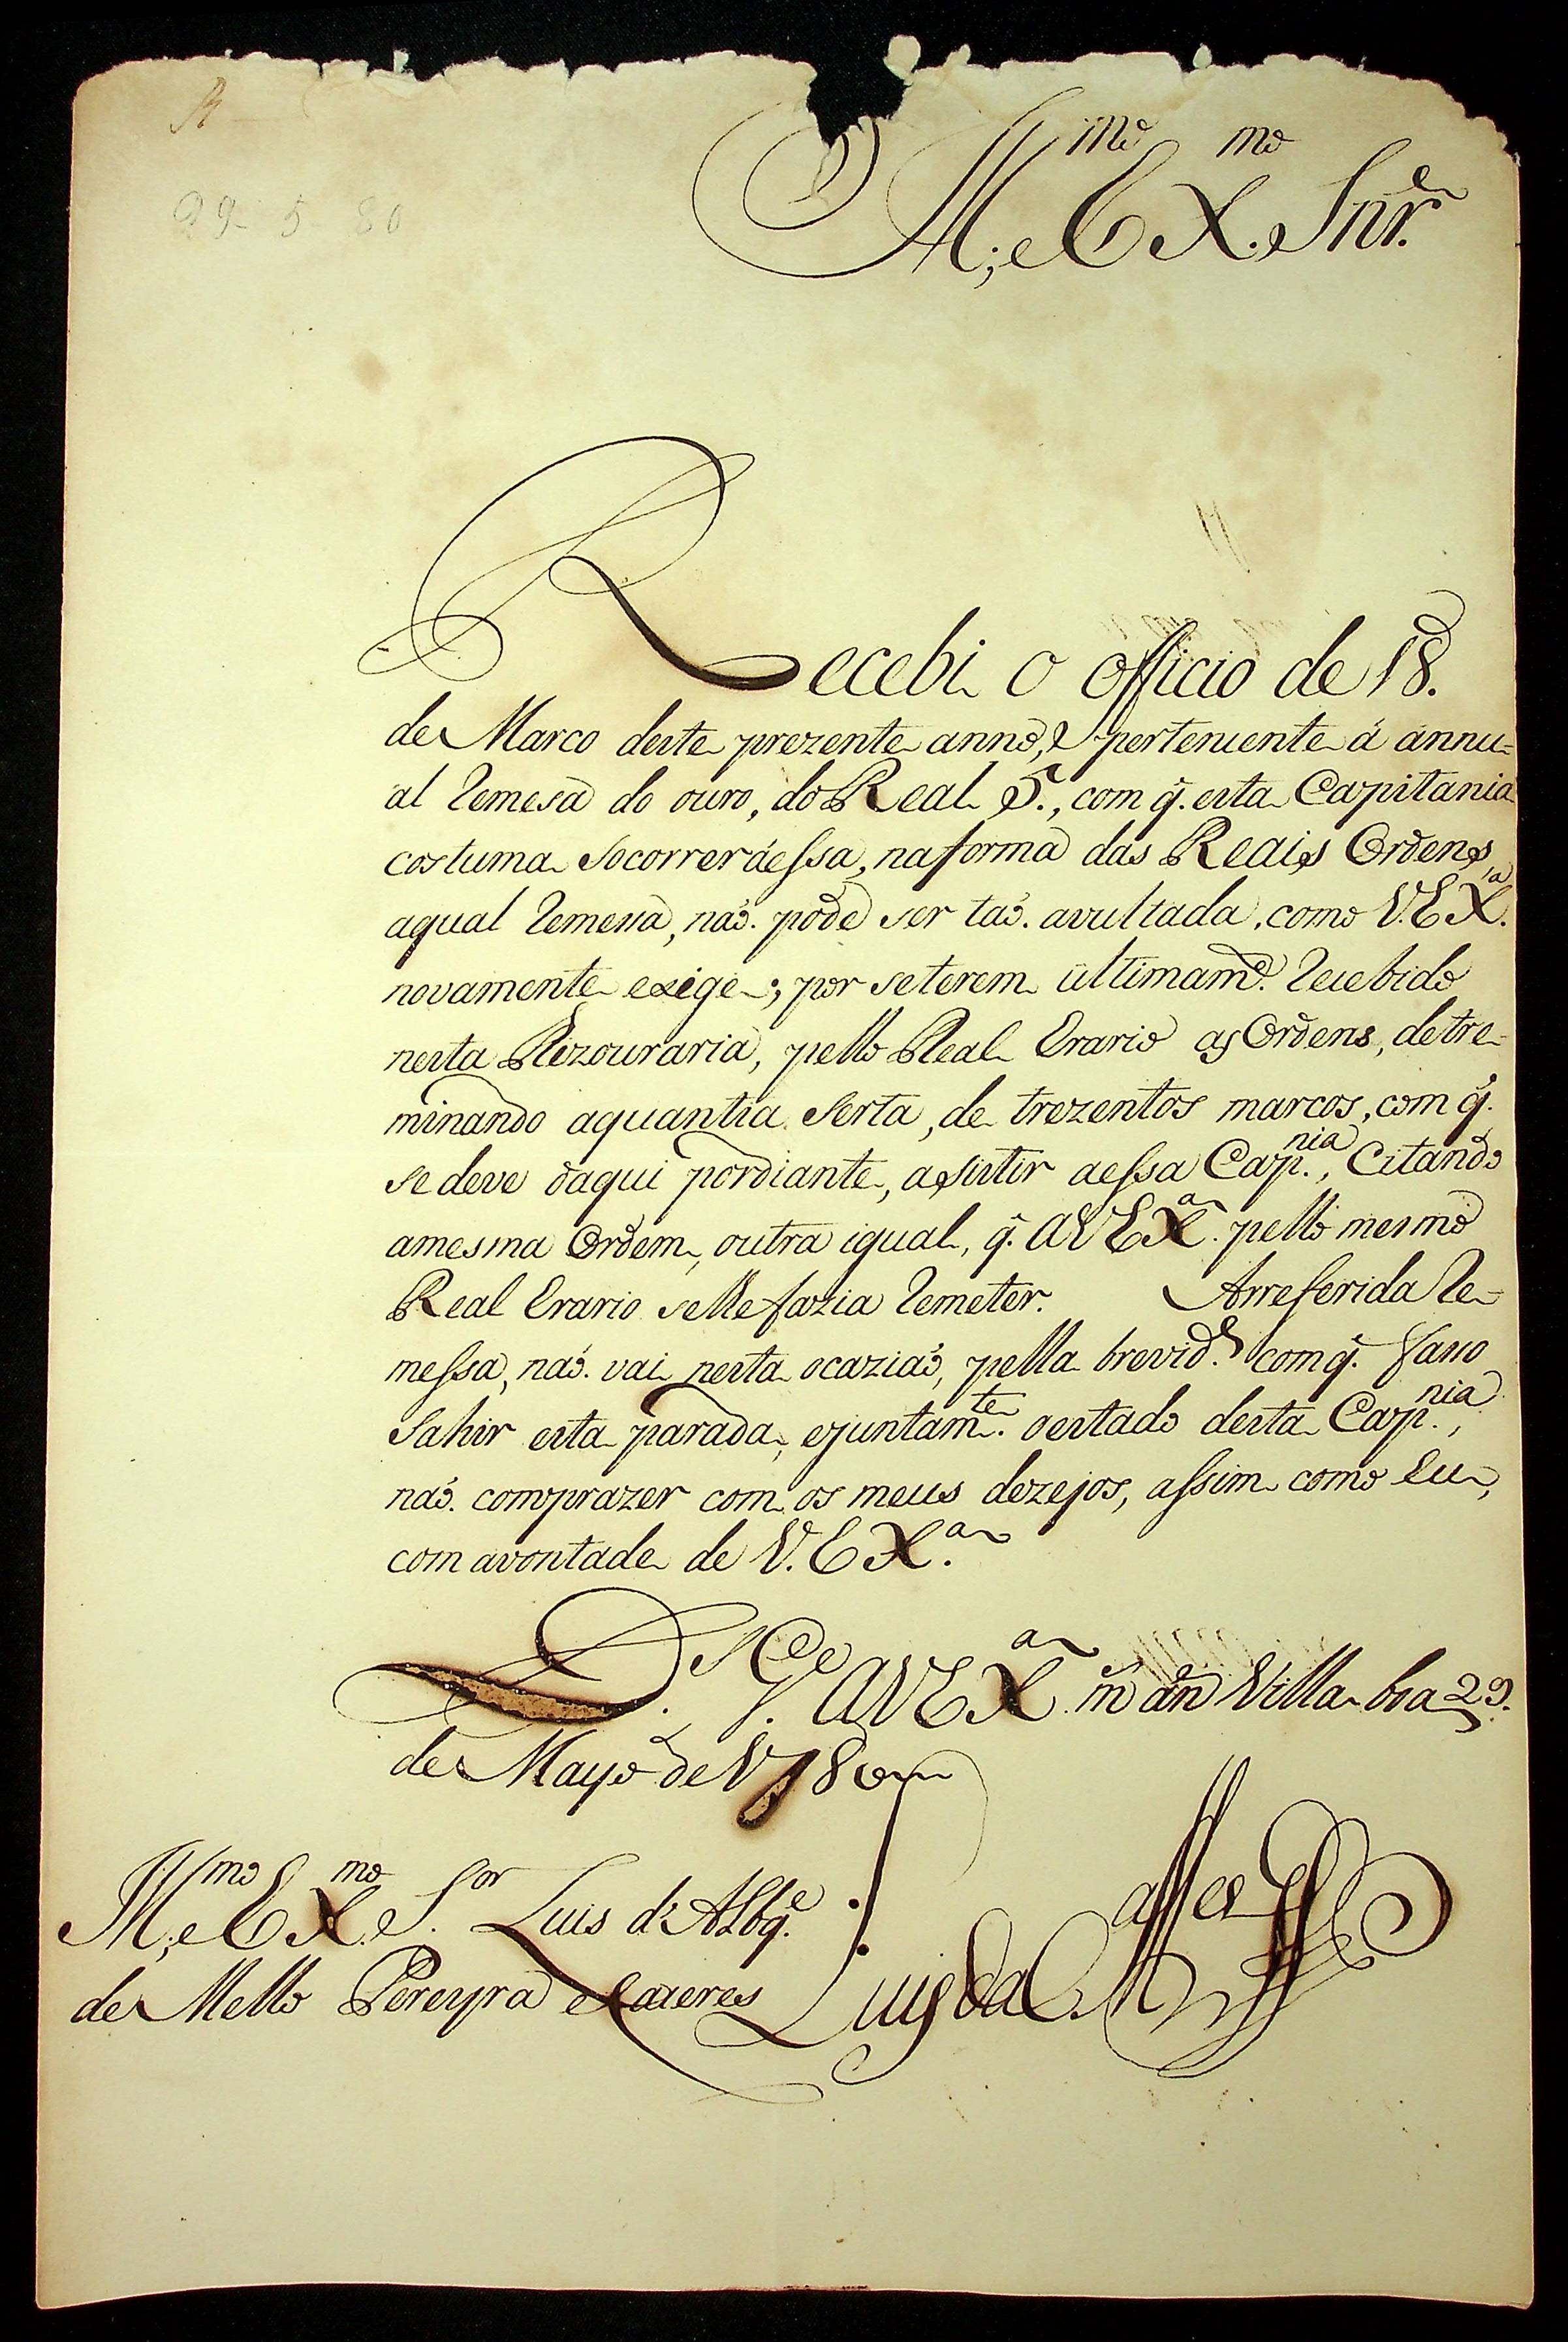 29- 5 80
Ill.mo e Ex.mo Snr.
Recebi o officio de 18.
de Marco deste prezente anno, pertencente á annu=
al Remesa do ouro, do Real 5.º, com q̃. esta Capitania
costuma Socorrer áessa, naforma das Reais Ordens,
aqual Remessa, naõ. pode ser taõ. avultada, como V. Ex.ª
novamente exige; por seterem ultimam.e Recebido
nesta Rezouraria, pello Real Erario as Ordens, detre-
minando aquantia Serta, de trezentos marcos, com q̃.
se deve daqui pordiante, asistir aessa Cap.nia, Citando
amesma Ordem, outra igual, q̃. AVEX.ª pello mesmo
Real Erario selhe fazia Remeter. Arreferida Re-
messa, naõ. vai nesta ocaziaõ, pella brevid.e com q̃. Fasso
Sahir esta parada, ejuntam.te oestado desta Cap.nia,
naõ. comprazer com os meus dezejos, assim como Eu,
com avontade de V. EX.ª
D.s G.e AVEX.ª m̃ an̄ Villa boa 29.
de Mayo de 1780
Ill.mo e Ex.mo S.or Luis d'Albq.e
de Mello Pereyra e Caceres
Luis da C.